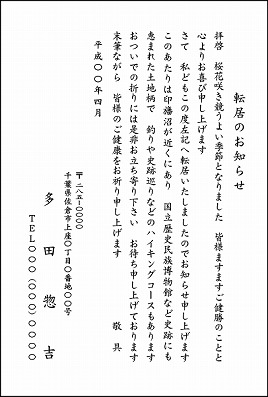 転居のお知らせ
拝啓　桜花咲き競うよい季節となりました　皆様ますますご健勝のことと
心よりお喜び申し上げます
さて　私どもこの度左記へ転居いたしましたのでお知らせ申し上げます
このあたりは印旛沼が近くにあり　国立歴史民族博物館など史跡にも
恵まれた土地柄で　釣りや史跡巡りなどのハイキングコースもあります
おついでの折りには是非お立ち寄り下さい　お待ち申し上げております
末筆ながら　皆様のご健康をお祈り申し上げます　敬具
平成〇〇年四月
〒二八五-〇〇〇〇
千葉県佐倉市上座〇丁目〇番地〇〇号
多田惣吉
TEL〇〇〇(〇〇〇)〇〇〇〇